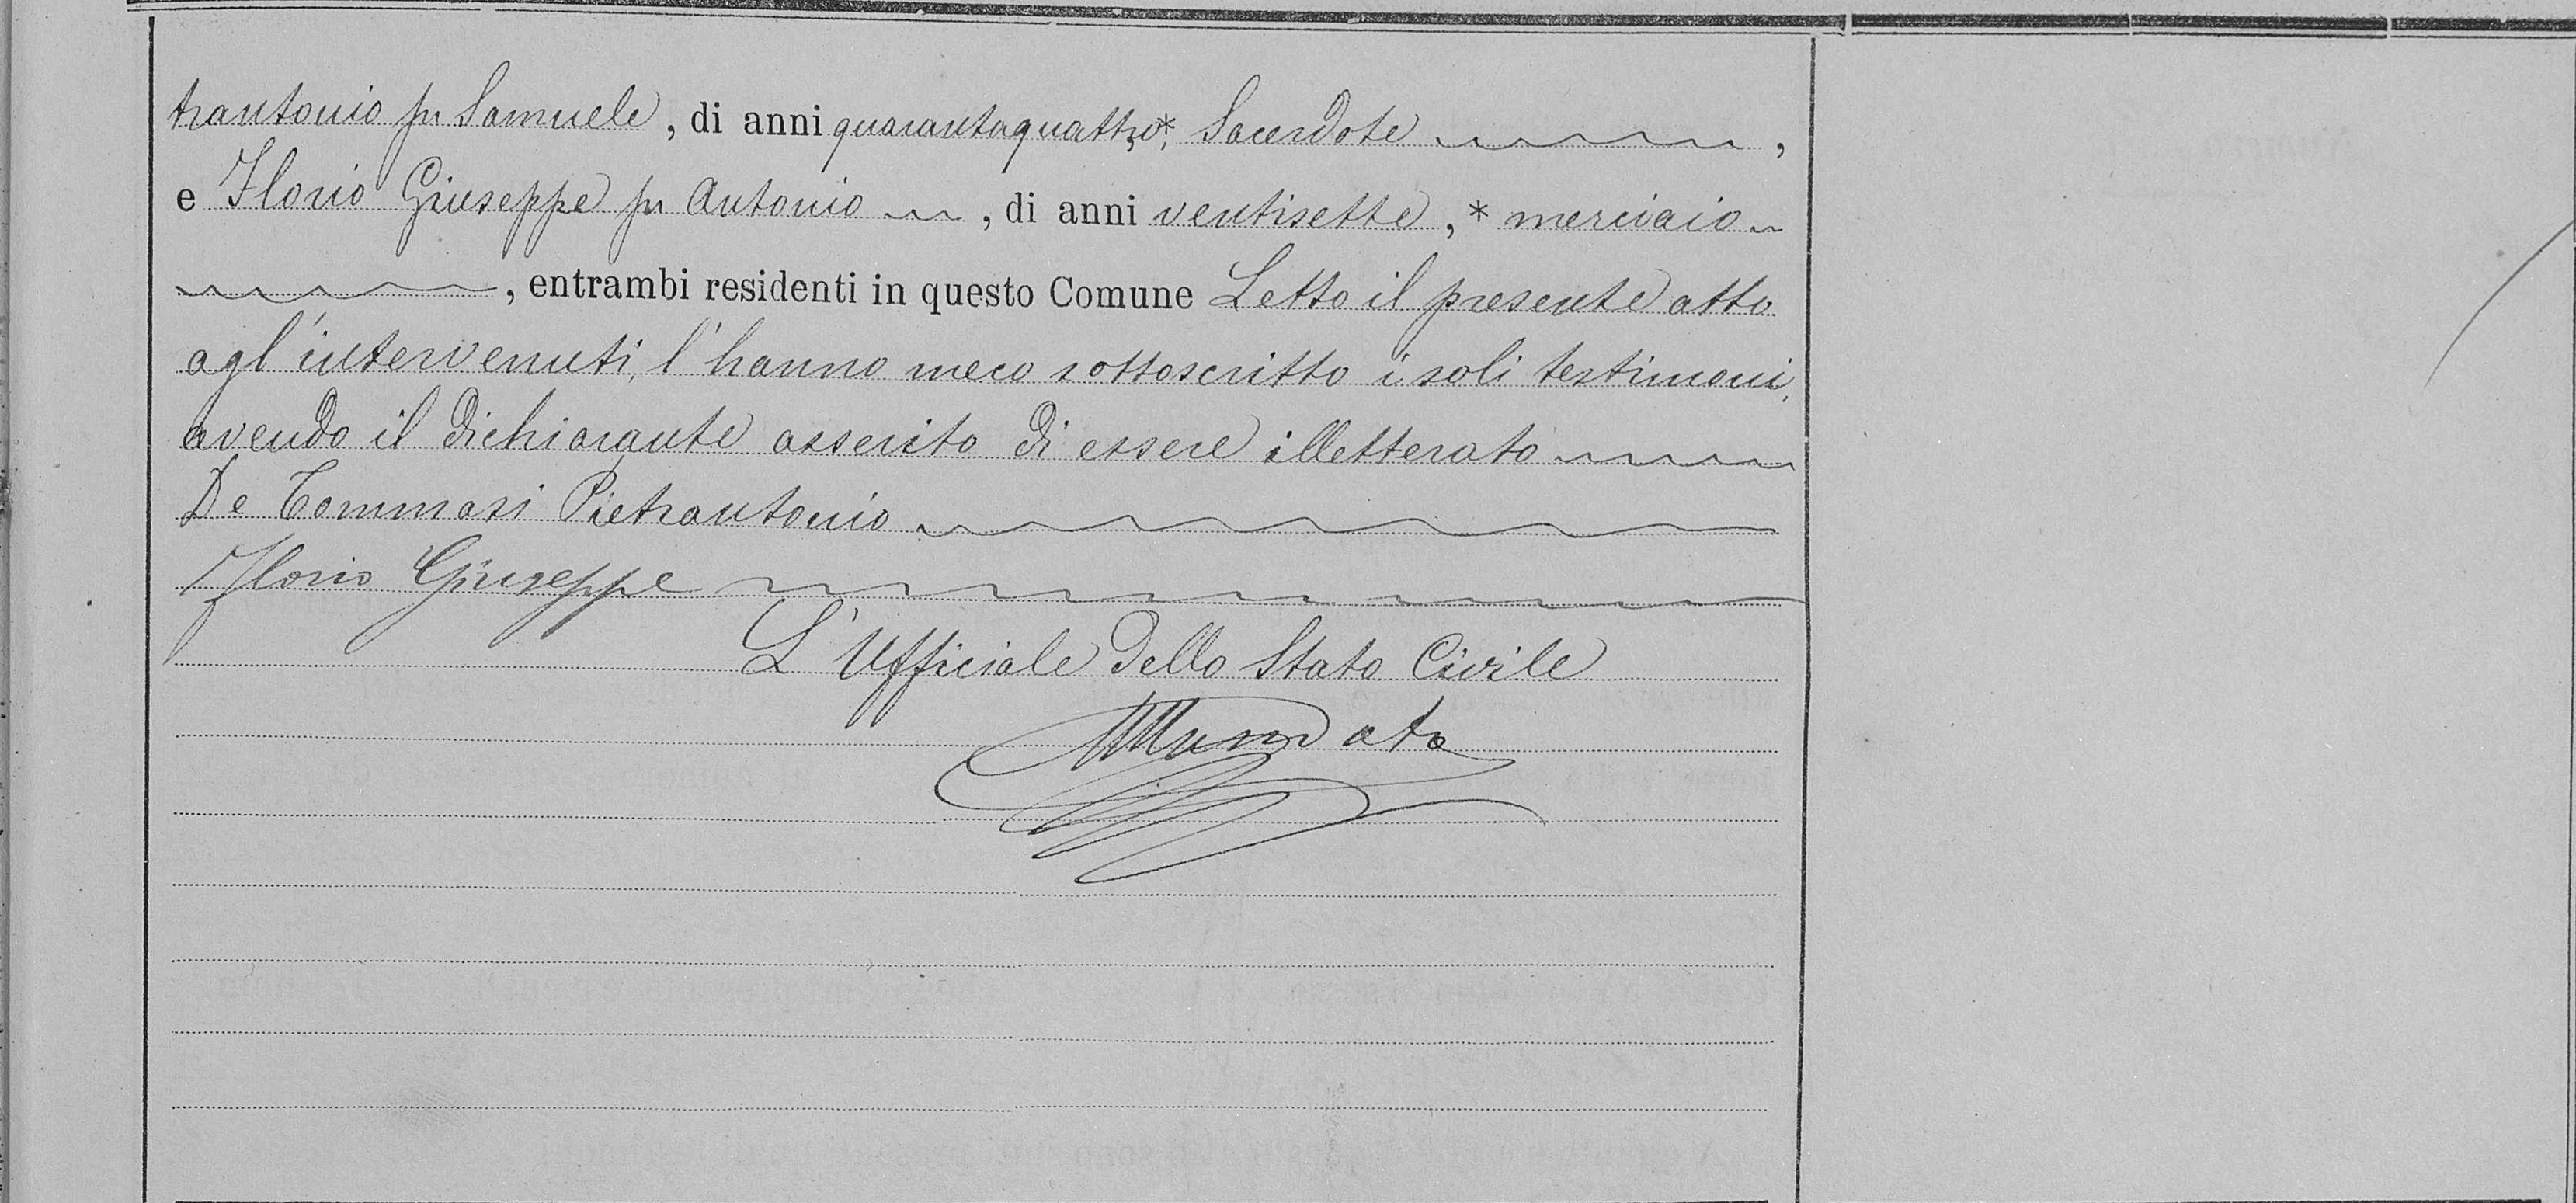 trantonio fu Samuele, di anni quarantaquattro*, Sacerdote ,
e Ilorio Giuseppe fu Antonio , di anni ventisette, * merciaio
, entrambi residenti in questo Comune Letto il presente atto
agl'intervenuti, l'hanno meco sottoscritto i soli testimoni,
avendo il dichiarante asserito di essere illetterato
De Tommasi Pietrantonio
Ilorio Giuseppe
L'Ufficiale dello Stato Civile